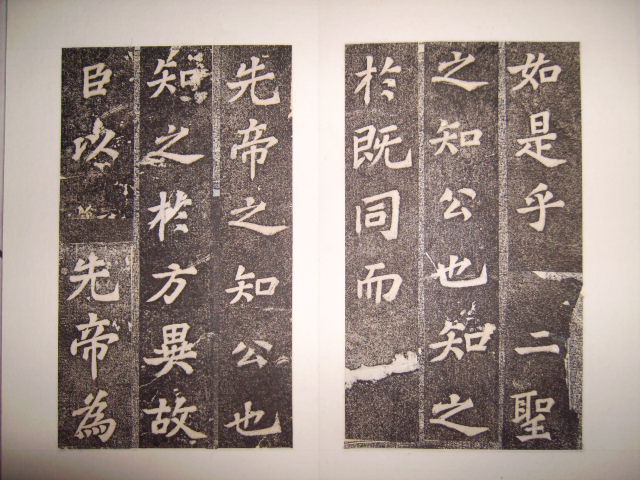 如是乎二聖
之知公也知之
於既同而
先帝之知公也
知之於方異故
臣以先帝為